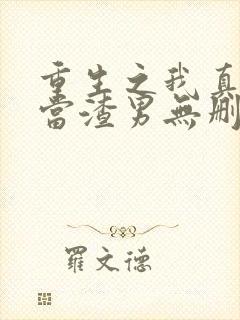 重生之我真
當渣男無刪
羅文德